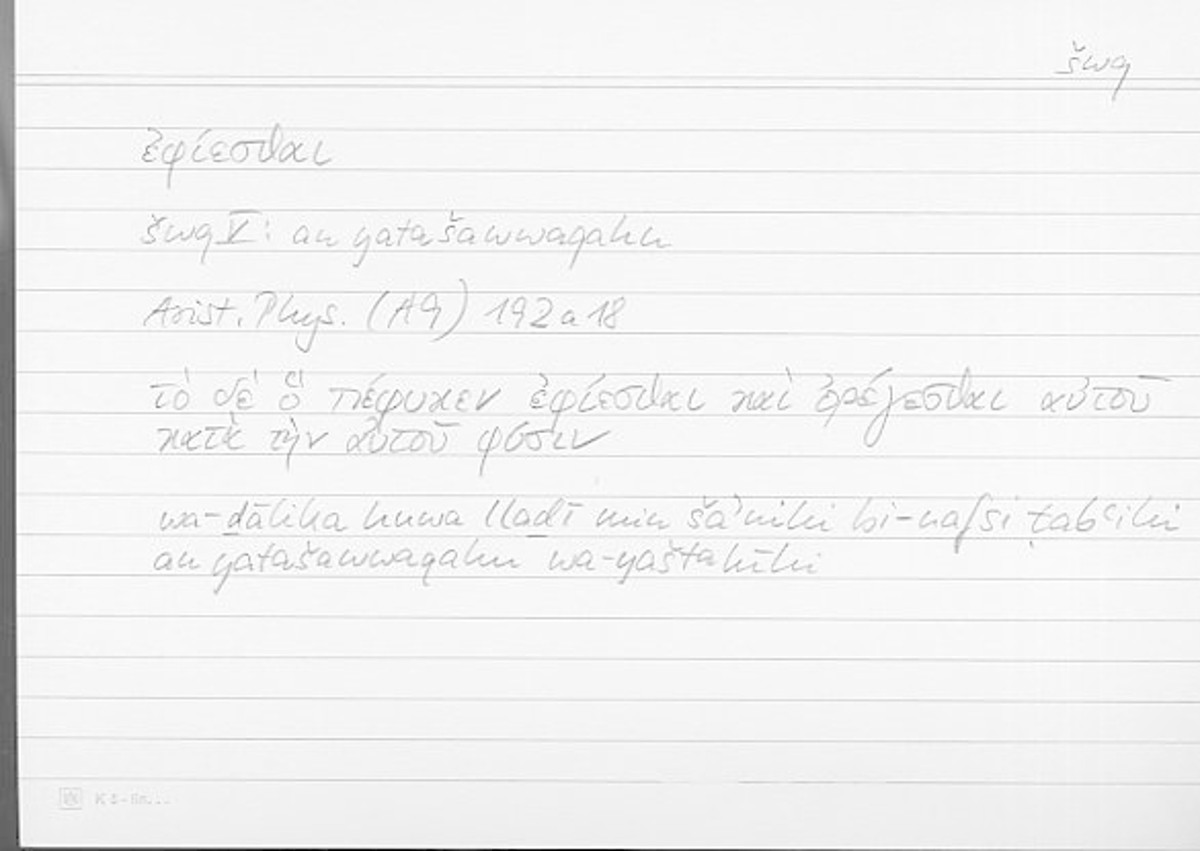 šwq
ἐφίεσθαι
šwq V: an yatašawwaqahu
Arist. Phys. (A9) 192a18
τὸ δὲ ὃ πέφυκεν ἐφίεσθαι καὶ ὀρέγεσθαι αὐτοῦ
κατὰ τὴν αὑτοῦ φύσιν
wa-ḏālika huwa lladī min ša'nihi bi-nafsi ṭabʿihi
an yatašawwaqahu wa-yaštahīhi